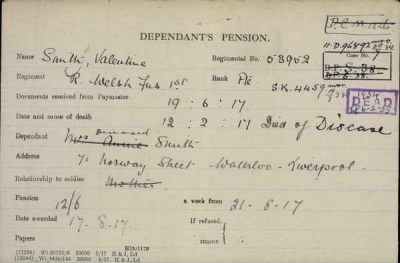 DEPENDANT'S PENSION.
P.C.M.
Name Smith, Valentine Regimental No. 53952
Regiment R. Welsh Fus 1st Rank Pte
D.P.S. 38.
SK.4459
Documents received from Paymaster 19 : 6 : 17
DEAD
Date and cause of death 12 : 2 : 17 Died of Disease
Dependant Mrs Annie Smith
Address 71 Norway Street - Waterloo - Liverpool
Relationship to soldier Mother
Pension 12/6 a week from 21-8-17
Date awarded 17-8-17 If refused,
Papers reason